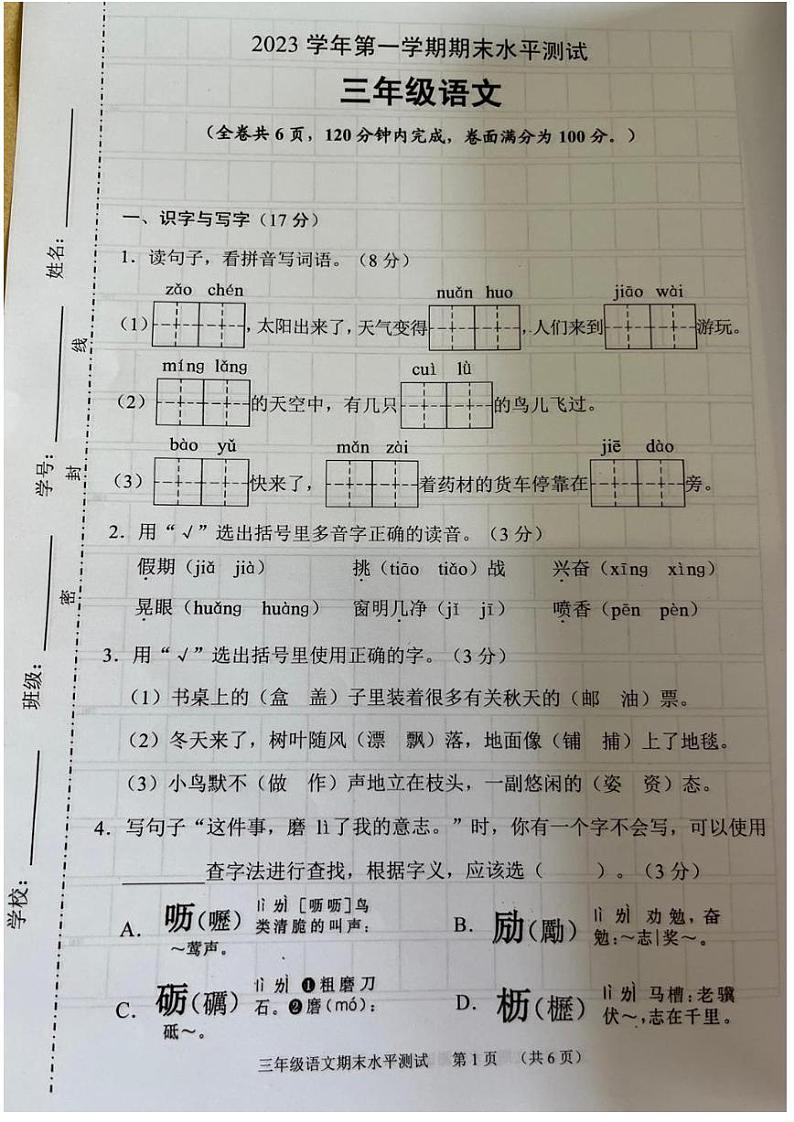 2023 学年第一学期期末水平测试
三年级语文
（全卷共 6 页，120 分钟内完成，卷面满分为 100 分。）
一、识字与写字（17 分）
1．读句子，看拼音写词语。（8 分）
zǎo chén nuǎn huo jiāo wài
（1） ，太阳出来了，天气变得 ，人们来到 游玩。
míng lǎng cuì lǜ
（2） 的天空中，有几只 的鸟儿飞过。
bào yǔ mǎn zài jiē dào
（3） 快来了， 着药材的货车停靠在 旁。
2．用“√”选出括号里多音字正确的读音。（3 分）
假期（jiǎ jià） 挑（tiāo tiǎo）战 兴奋（xīng xìng）
晃眼（huǎng huàng） 窗明几净（jǐ jī） 喷香（pēn pèn）
3．用“√”选出括号里使用正确的字。（3 分）
（1）书桌上的（盒 盖）子里装着很多有关秋天的（邮 油）票。
（2）冬天来了，树叶随风（漂 飘）落，地面像（铺 捕）上了地毯。
（3）小鸟默不（做 作）声地立在枝头，一副悠闲的（姿 资）态。
4．写句子“这件事，磨 lì了我的意志。”时，你有一个字不会写，可以使用
________查字法进行查找，根据字义，应该选（ ）。（3 分）
A．呖(嚦) lì ㄌㄧˋ [呖呖]鸟
类清脆的叫声：
～莺声。
B．励(勵) lì ㄌㄧˋ 劝勉，奋
勉：～志|奖～。
C．砺(礪) lì ㄌㄧˋ ❶粗磨刀
石。❷磨(mó)：
砥～。
D．枥(櫪) lì ㄌㄧˋ 马槽：老骥
伏～，志在千里。
三年级语文期末水平测试 第 1 页 （共 6 页）
姓名：
学号：
班级：
学校：
线
封
密